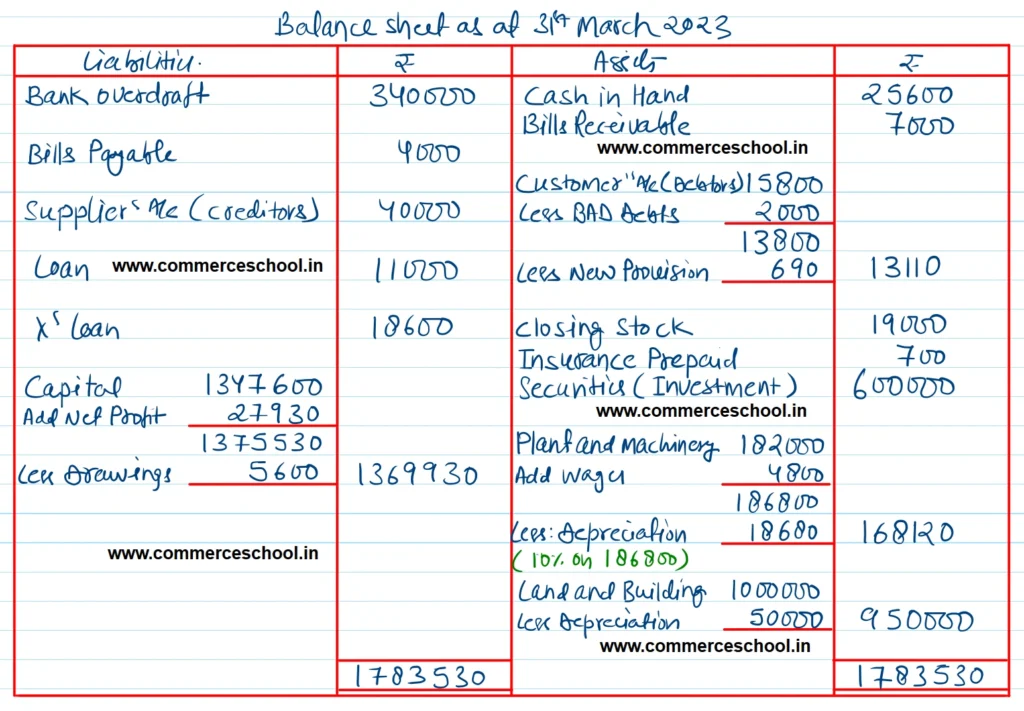 Balance sheet as at 31st March 2023
Liabilities. ₹ Assets ₹
Bank overdraft 340000 Cash in Hand 25600
Bills Receivable 7000
Bills Payable 4000 www.commerceschool.in
Customer" A/c (Debtors) 15800
Supplier's A/c (creditors) 40000 Less BAD Debts 2000
13800
Loan www.commerceschool.in 11000 Less New Provision 690 13110
X's Loan 18600 Closing Stock 19000
Insurance Prepaid 700
Capital 1347600 Securities (Investment) 600000
Add Net Profit 27930 www.commerceschool.in
1375530 Plant and Machinery 182000
Less Drawings 5600 1369930 Add Wages 4800
186800
Less: Depreciation 18680 168120
www.commerceschool.in (10% on 186800)
Land and Building 1000000
Less Depreciation 50000 950000
www.commerceschool.in
1783530 1783530